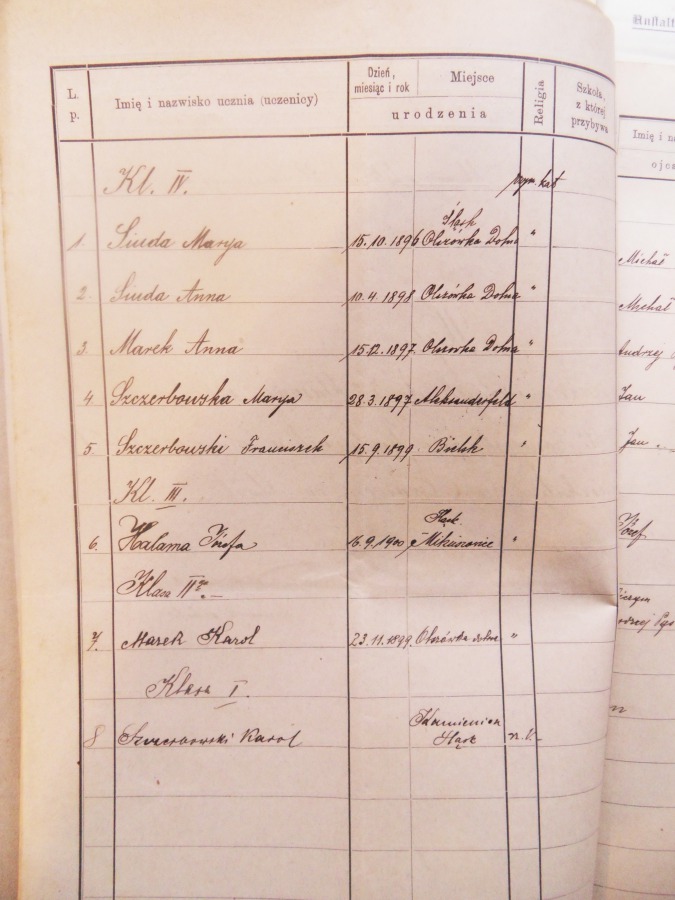 L. p.
Imię i nazwisko ucznia (uczenicy)
Dzień, miesiąc i rok
Miejsce
urodzenia
Religia
Szkoła, z której przybywa
Kl. IV. rzym. kat
Śląsk
1. Siuda Marya 15.10.1896 Olszówka Dolna "
2. Siuda Anna 10.4.1898 Olszówka Dolna "
3. Marek Anna 15.12.1897 Olszówka Dolna "
4. Szczerbowska Marya 28.3.1897 Aleksanderfeld "
5. Szczerbowski Franciszek 15.9.1899 Bielsk "
Kl. III.
Śląsk
6. Halama Józefa 16.9.1900 Mikuszowice "
Klasa II
7. Marek Karol 23.11.1899. Olszówka dolna "
Klasa I.
Kamienica
8 Szczerbowski Karol Śląsk
Imię i na
ojc
Michał
Michał
Andrzej
Jan
Jan
Józef